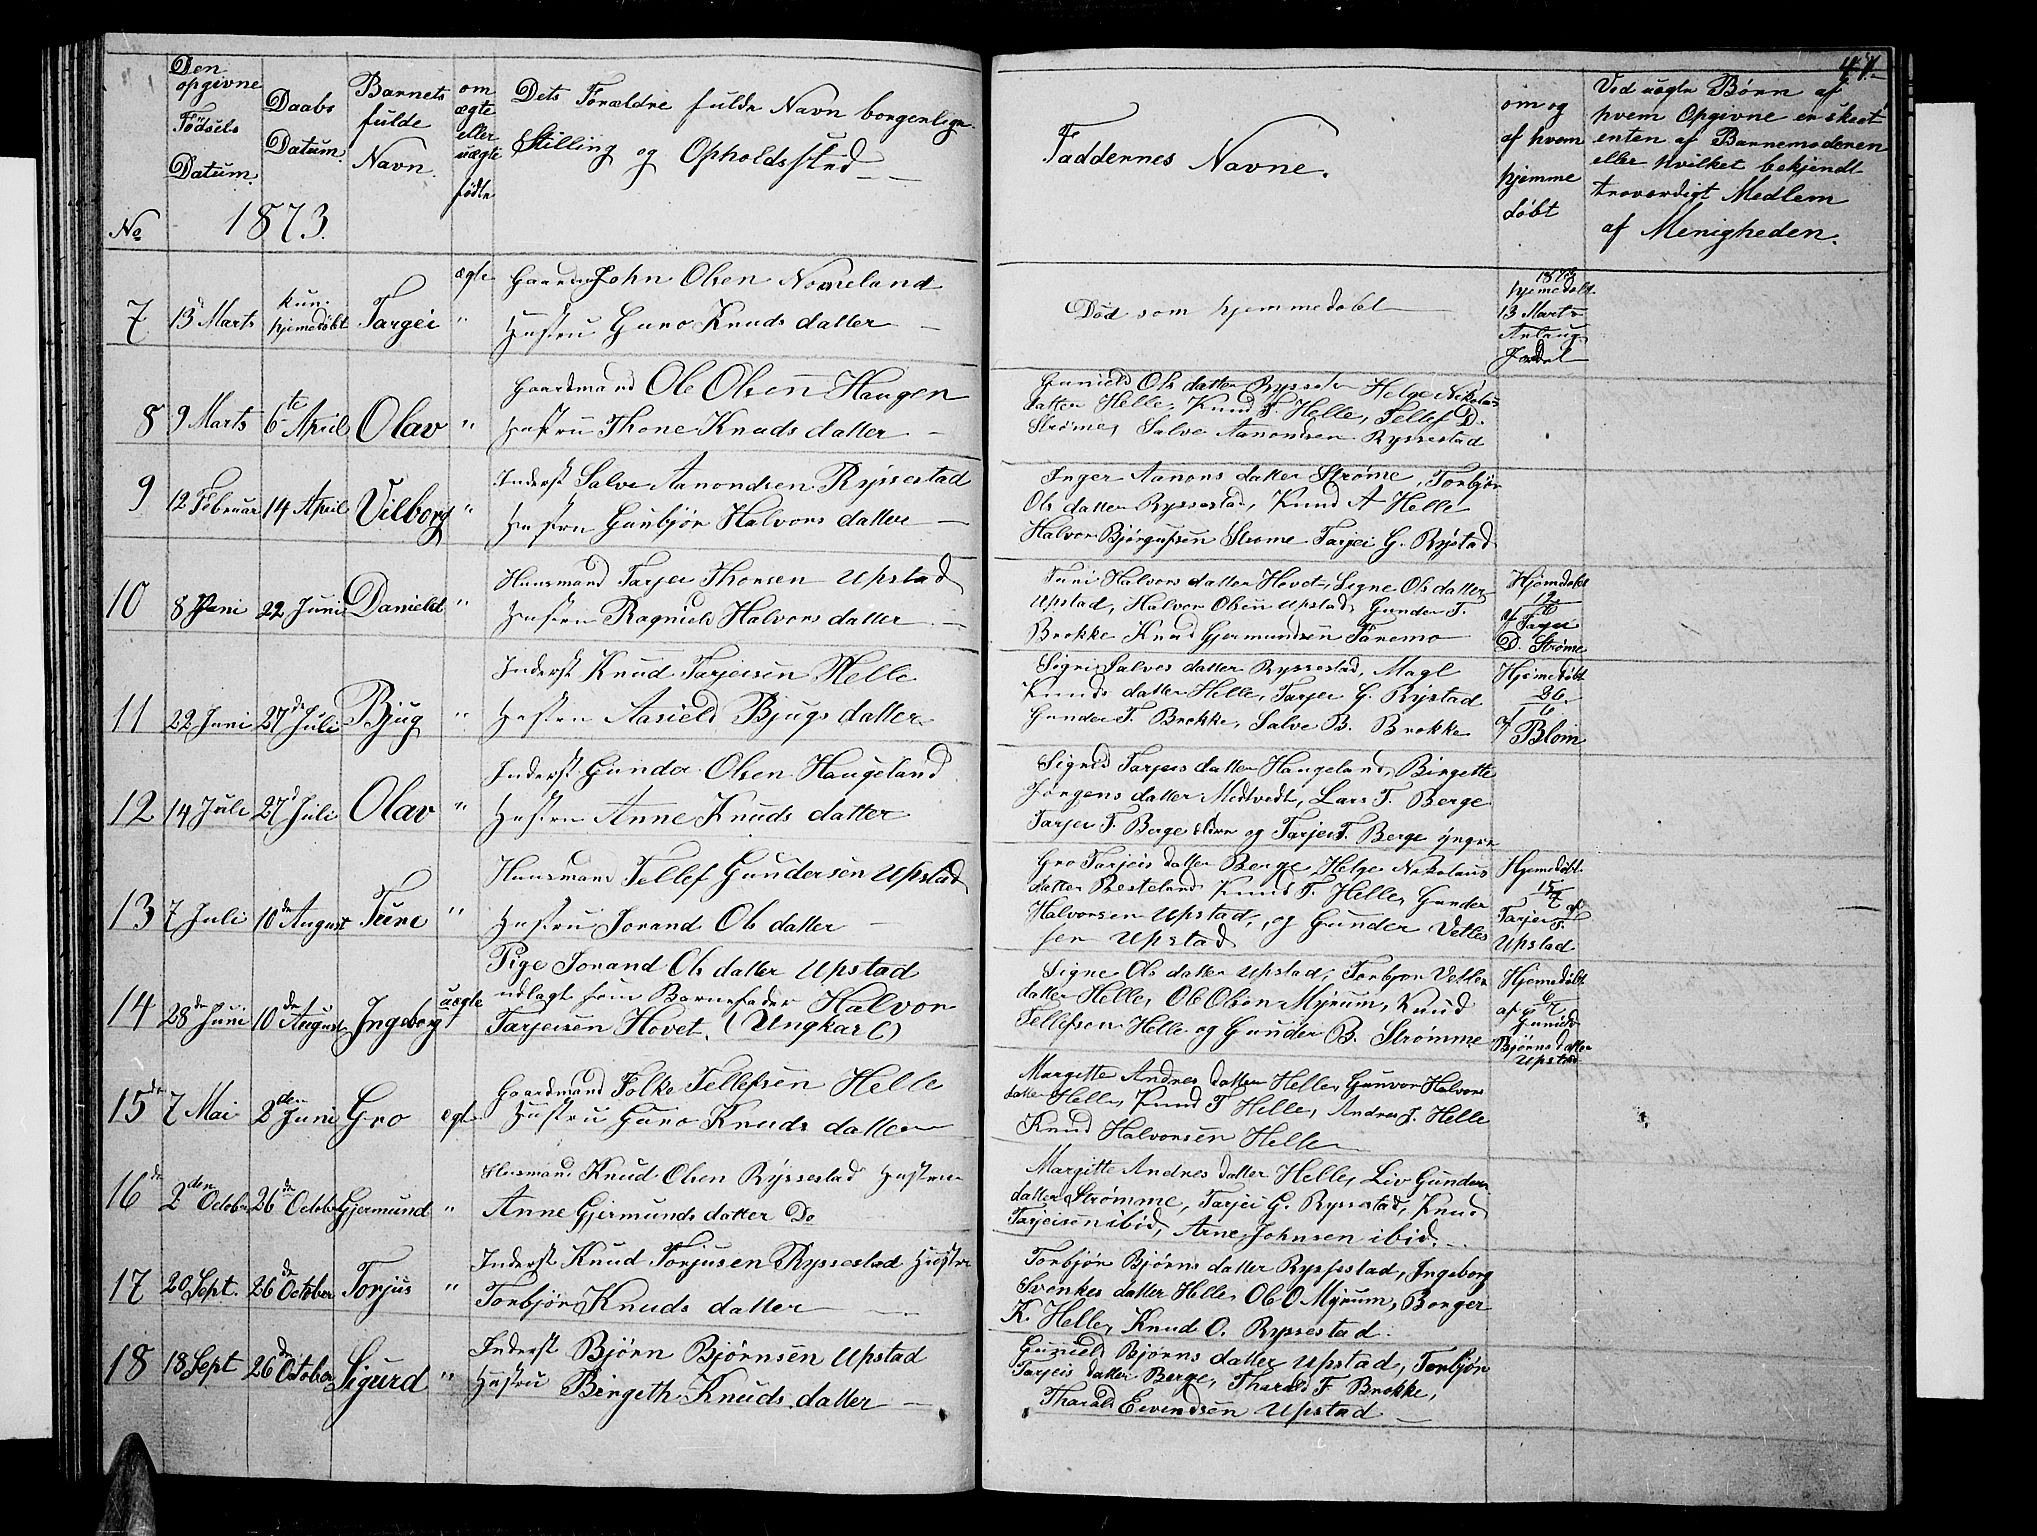 47.
Den opgivne Fødsels Datum.
Daabs Datum.
Barnets fulde Navn.
om ægte eller uægte født
Dets Forældre fulde Navn borgerlige
Stilling og Opholdssted
Faddernes Navne.
om og af hvem hjemme døbt
Ved uægte Børn af
hvem Opgivne er skeet
enten af Barnemoderen
eller hvilket bekjendt
troværdigt Medlem
af Menigheden.
No 1873.
7 13 Marts kun hjemedøbt Targei ægte " Gaardm John Olsen Nomeland
Hustru Guro Knuds datter
Død som hjemmedøbt
1873 hjemedøbt 13 Marts
8 9 Marts 6te April Olav " Gaardmand Ole Olsen Haugen
Hustru Thone Knuds datter
Gunield Ols datter Ryssestad Helge Nikolaus
datter Helle, Knud T. Helle, Tellef D.
Strøme, Salve Aanondsen Ryssestad
9 12 Februar 14 April Vilborg " Inderst Salve Aanondsen Ryssestad
Hustru Gunbjør Halvors datter
Inger Aanons datter Strøme, Torbjør
Ols datter Ryssestad, Knud A Helle
Halvor Bjørgufsen Strome Tarjei G. Rystad
10 8 Juni 22 Juni Danield " Huusmand Tarjei Thorsen Upstad
Hustru Ragnield Halvors datter
Turi Halvors datter Hovet, Signe Ols datter
Upstad, Halvor Olsen Upstad, Gunder T.
Brokke Knud Gjermundsen Faremo
Hjemdøbt 12/6 af Tarjei D. Strøme
11 22 Juni 27de Juli Bjug " Inderst Knud Tarjeisen Helle
Hustru Aasield Bjugs datter
Signi Salves datter Ryssestad, Magl
Knuds datter Helle, Tarjei G. Rystad
Gunder T. Brokke, Salve B. Brokke
Hjemedøbt 26/6 af Blom
12 14 Juli 27d Juli Olav " Inderst Gunder Olsen Haugeland
Hustru Anne Knuds datter
Sigrid Tarjeis datter Haugeland, Birgette
Jørgens datter Medtvedt, Lars T. Berge
Tarjei T. Berge eldre og Tarjei T. Berge yngre
13 7 Juli 10de August Turie " Huusmand Tellef Gundersen Upstad
Hustru Jorand Ols datter
Gro Tarjeis datter Berge, Helge Nikolaus
datter Besteland Knud T. Helle, Gunder
Halvorsen Upstad, og Gunder Vetles
sen Upstad
Hjemedøbt 15/7 af Tarjei T. Upstad
14 28de Juni 10de August Ingeborg uægte Pige Jorand Ols datter Upstad
udlagt som Barnefader Halvor
Tarjeisen Hovet. (Ungkarl)
Signe Ols datter Upstad, Torbjør Vetles
datter Helle, Ole Olsen Myrum, Knud
Tellefsen Helle og Gunder B. Strømme
Hjemedøbt af Gunield Bjørnsdatter Upstad
15de 7 Mai 2den Juni Gro ægte Gaardmand Folke Tellefsen Helle
Hustru Guro Knuds datter
Margitte Andres datter Helle, Gunvor Halvors
datter Helle, Knud T Helle, Andres J. Helle
Knud Halvorsen Helle
16de 2den October 26de October Gjermund " Huusmand Knud Olsen Ryssestad Hustru
Anne Gjermunds datter Do
Margitte Andres datter Helle, Liv Gunders
datter Strømme, Tarjei G. Ryssestad, Knud
Tarjeisen ibid, Arne Johnsen ibid.
17 20 Sept. 26de October Torjus " Inderst Knud Torjusen Ryssestad Hustru
Torbjør Knuds datter
Torbjør Bjørns datter Ryssestad, Ingeborg
Svenkes datter Helle, Ole O Myrum, Borger
K. Helle, Knud O. Ryssestad.
18 18 Sept 26de October Sigurd " Inderst Bjørn Bjørnsen Upstad
Hustru Birgeth Knuds datter
Gunield Bjørns datter Upstad, Torbjør
Tarjeis datter Berge, Tharald F Brokke,
Tharald Eivendsen Upstad